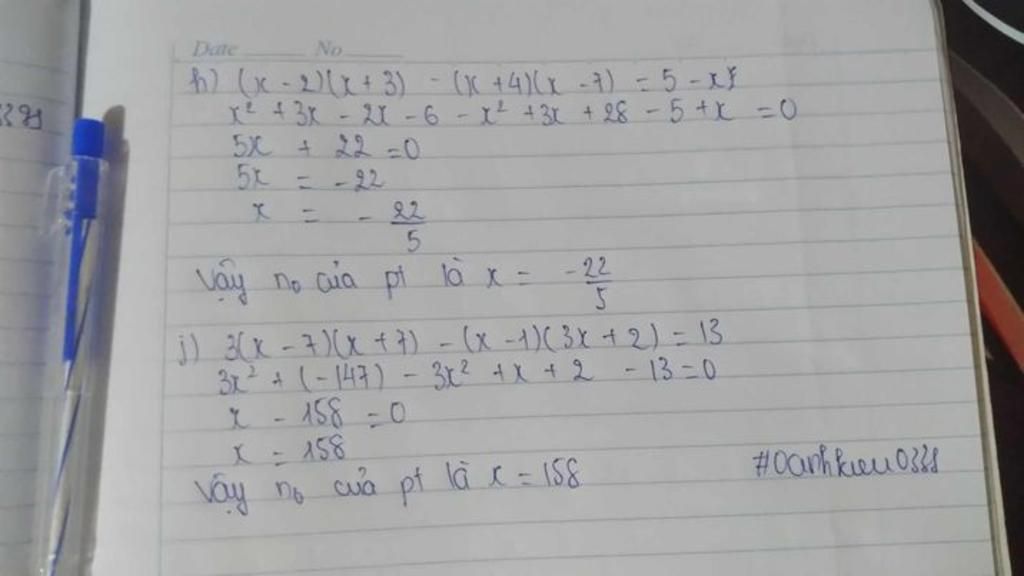 Date No
h) (x - 2)(x + 3) - (x + 4)(x - 7) = 5 - x
x² + 3x - 2x - 6 - x² + 3x + 28 - 5 + x = 0
5x + 22 = 0
5x = -22
x = - 22/5
Vậy no của pt là x = -22/5
j) 3(x - 7)(x + 7) - (x - 1)(3x + 2) = 13
3x² + (-147) - 3x² + x + 2 - 13 = 0
x - 158 = 0
x = 158
Vậy no của pt là x = 158